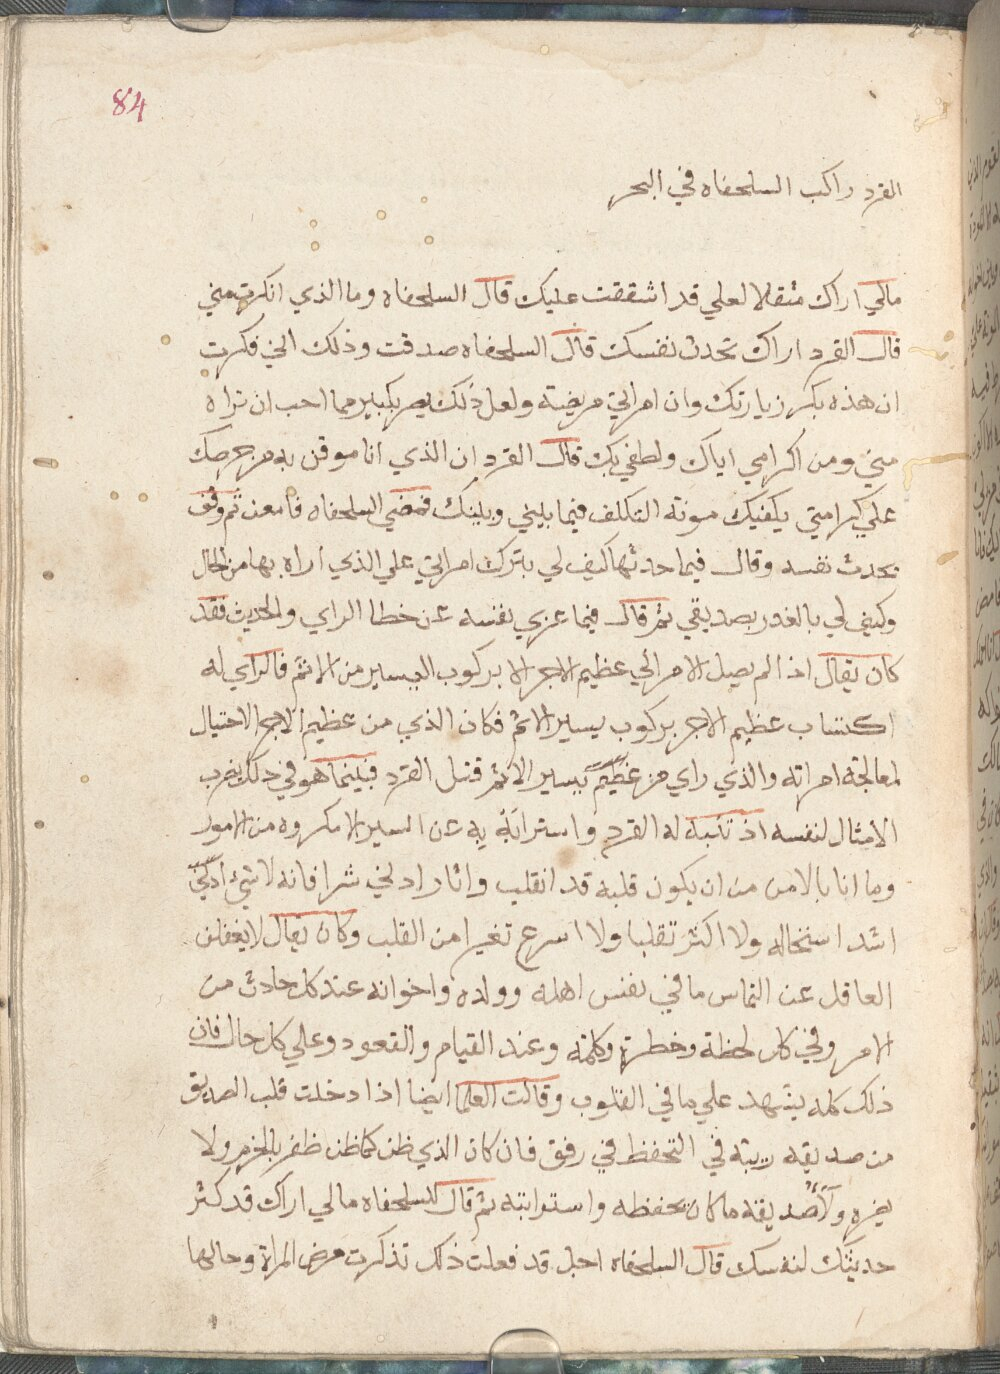 84
القرد راكب السلحفاه في البحر
مالي اراك مثقلا لعلي قد اشققت عليك قال السلحفاه وما الذي انكرت مني
قال القرد اراك تحدث نفسك قال السلحفاه صدقت وذلك اني فكرت
ان هذه بكر زيارتك وان امراتي مريضة ولعل ذلك يصير بكبير مما احب ان تراه
مني ومن اكرامي اياك ولطفي بك قال القرد ان الذي انا موقن به من حرصك
علي كرامتي يكفيك مونة التكلف فيما بيني وبينك فمضي السلحفاه فامعن ثم وقف
يحدث نفسه وقال فيما حدثها كيف لي بترك امراتي علي الذي اراه بها من الحال
وكيف لي بالغدر بصديقي ثم قال فيما عزي نفسه عن خطا الراي والحديث فقد
كان يقال اذا لم يصل الامر الي عظيم الاجر الا بركوب اليسير من الاثم فالراي له
اكتساب عظيم الاجر بركوب يسير الاثم فكان الذي من عظيم الاجر الاحتيال
لمعالجة امراته والذي راي من عظيم يسير الاثم قتل القرد فبينما هو في ذلك يضرب
الامثال لنفسه اذ تنبه له القرد واسترابة به عن السير الامكروه من الامور
وما انا بالامن من ان يكون قلبه قد انقلب وانا راد لخي شرا فانه لا شيء
اشد استحاله ولا اكثر تقلبا ولا اسرع تغيرا من القلب وكان يقال لا يغفلن
العاقل عن التماس ما في نفس اهله وولده واخوانه عند كل حادث من
الامر وفي كل لحظة وخطرة وكلمة وعند القيام والقعود وعلي كل حال فان
ذلك كله يشهد علي ما في القلوب وقالت العلما ايضا اذا دخلت قلب الصديق
من صديقه ريبة في التحفظ في رفق فان كان الذي ظن كما ظن ظفر بالحزم ولا
يضره ولا صديقه ما كان تحفظه واسترابته ثم قال للسلحفاه مالي اراك قد كثر
حديثك لنفسك قال السلحفاه اجل قد فعلت ذلك تذكرت مرض المراة وحالها